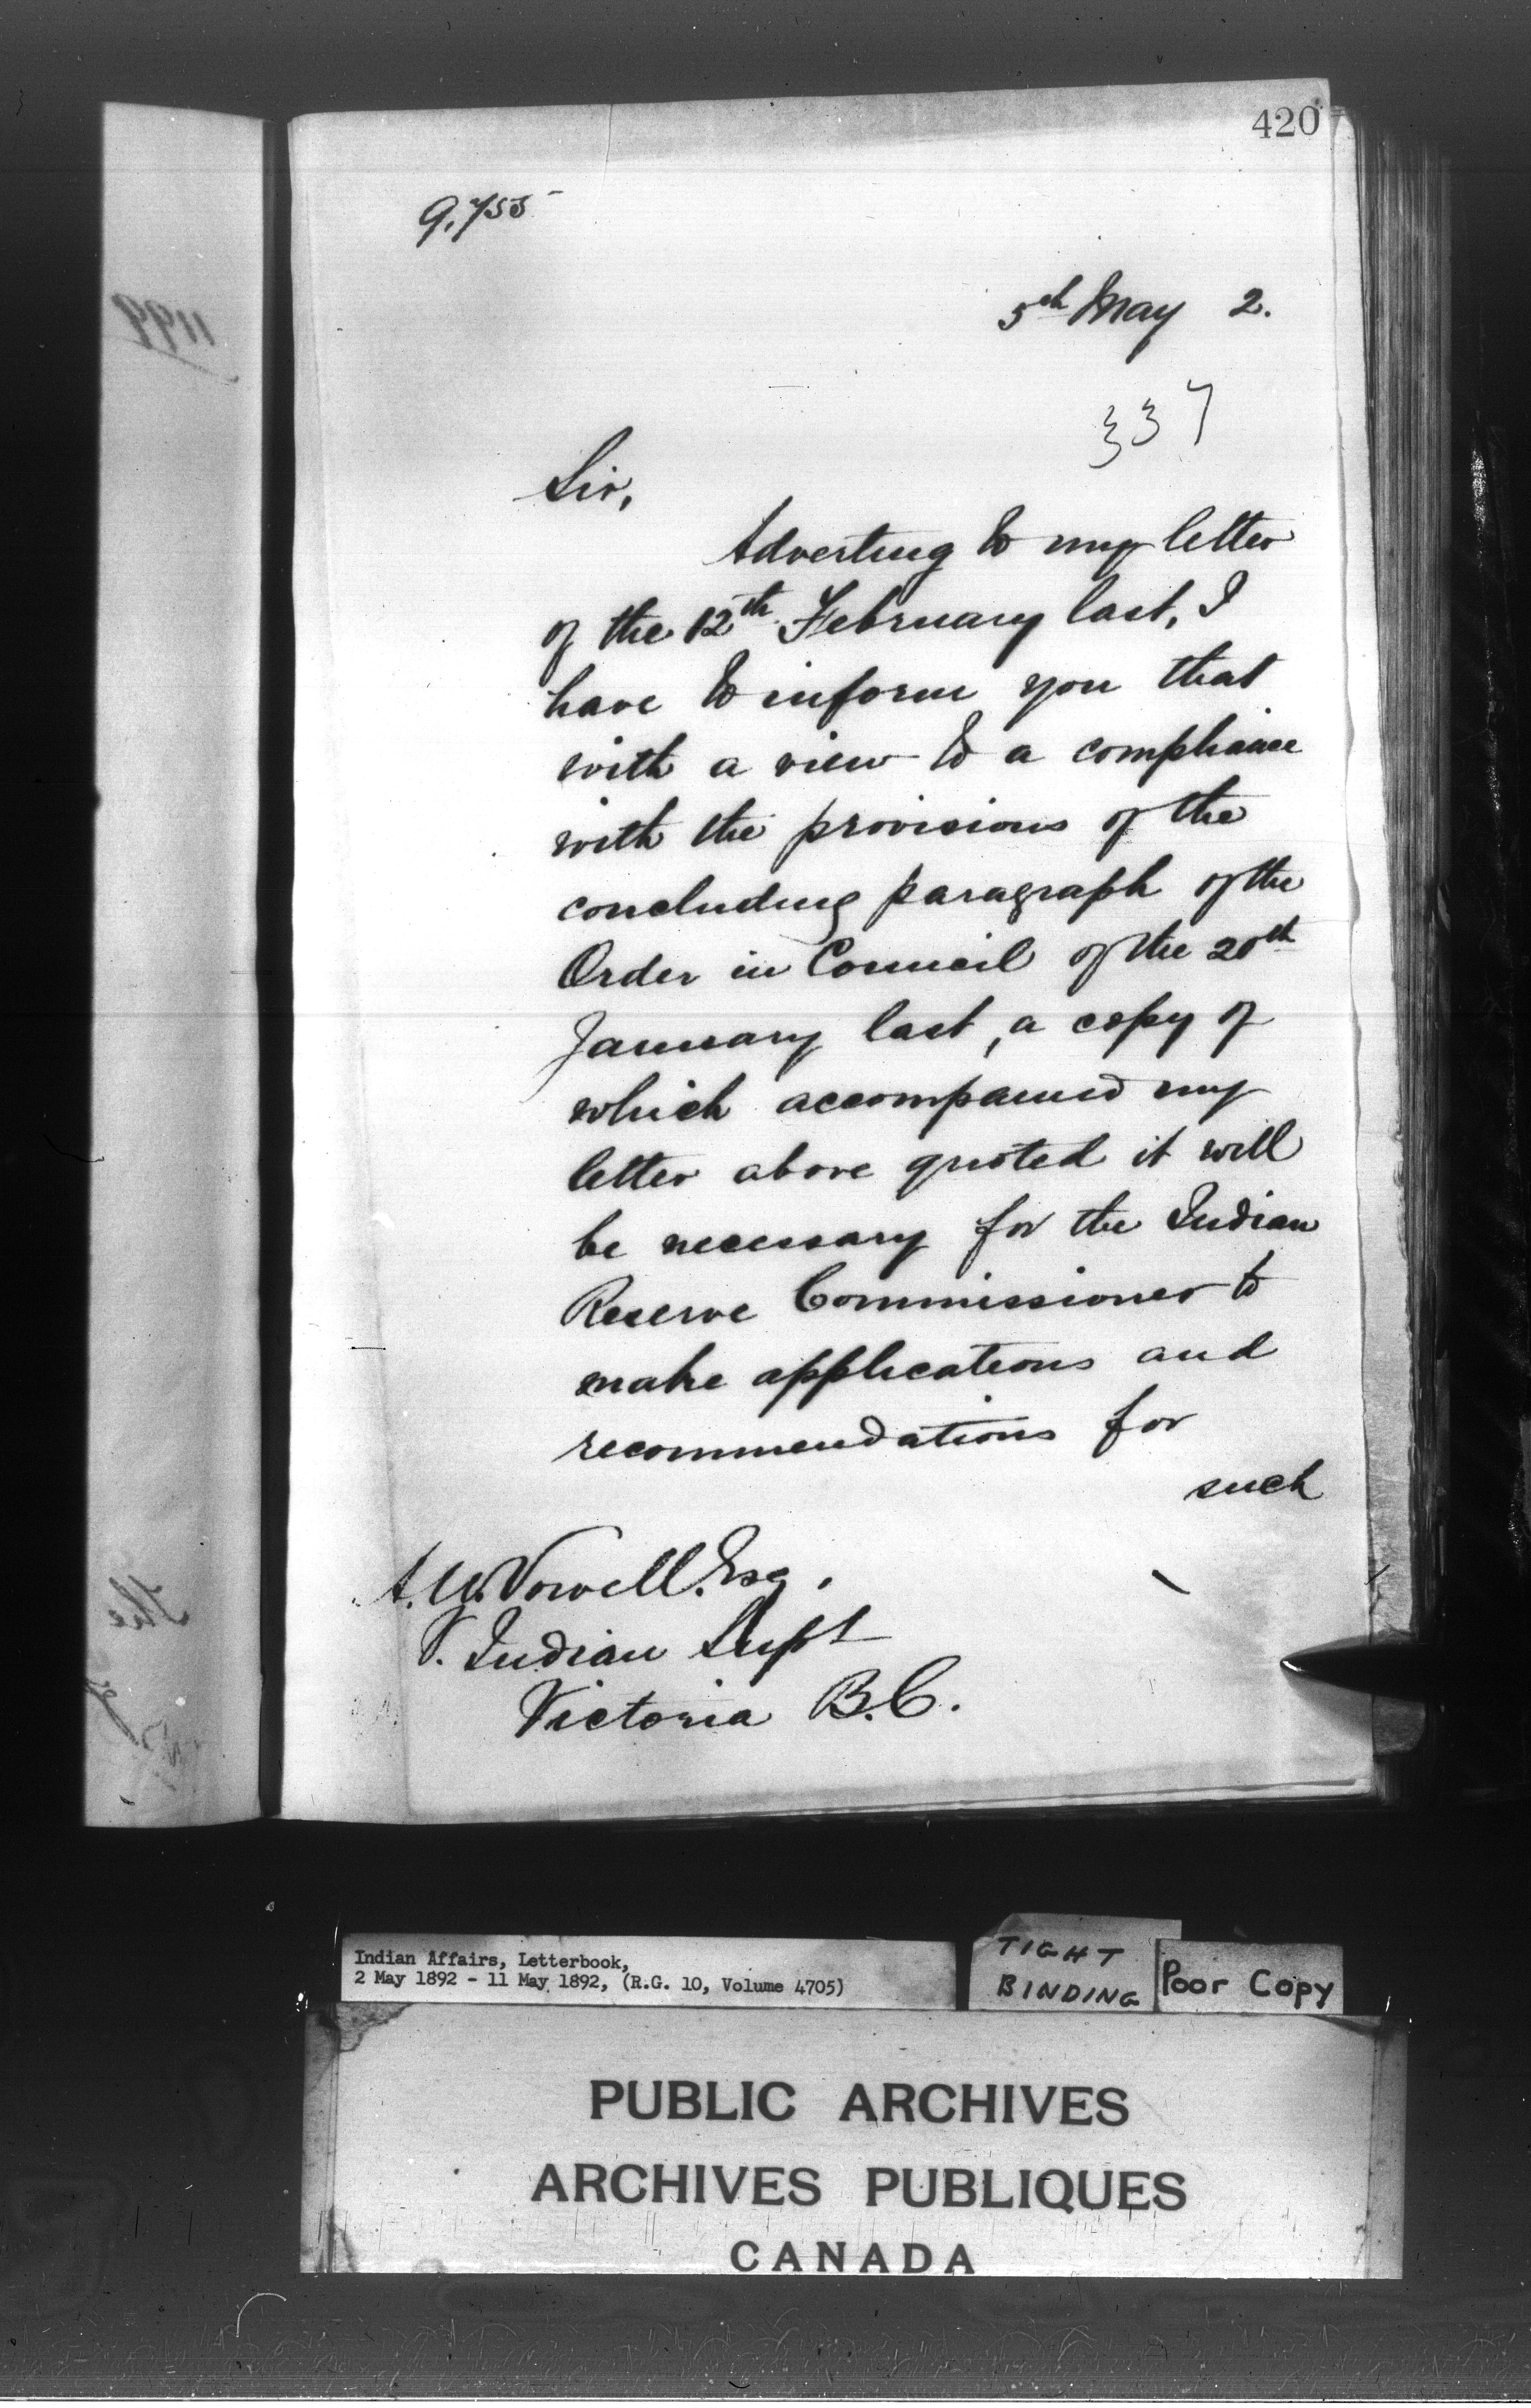 420
9,755
5th May 2.
337
Sir,
Adverting to my letter
of the 12th February last, I
have to inform you that
with a view to a compliance
with the provisions of the
concluding paragraph of the
Order in Council of the 20th
January last, a copy of
which accompanied my
letter above quoted it will
be necessary for the Indian
Reserve Commissioner to
make applications and
recommendations for
such
A. W. Vowell. Esq.
Indian Supt
Victoria B.C.
Indian Affairs, Letterbook,
2 May 1892 - 11 May 1892, (R.G. 10, Volume 4705)
TIGHT
BINDING
Poor Copy
PUBLIC ARCHIVES
ARCHIVES PUBLIQUES
CANADA